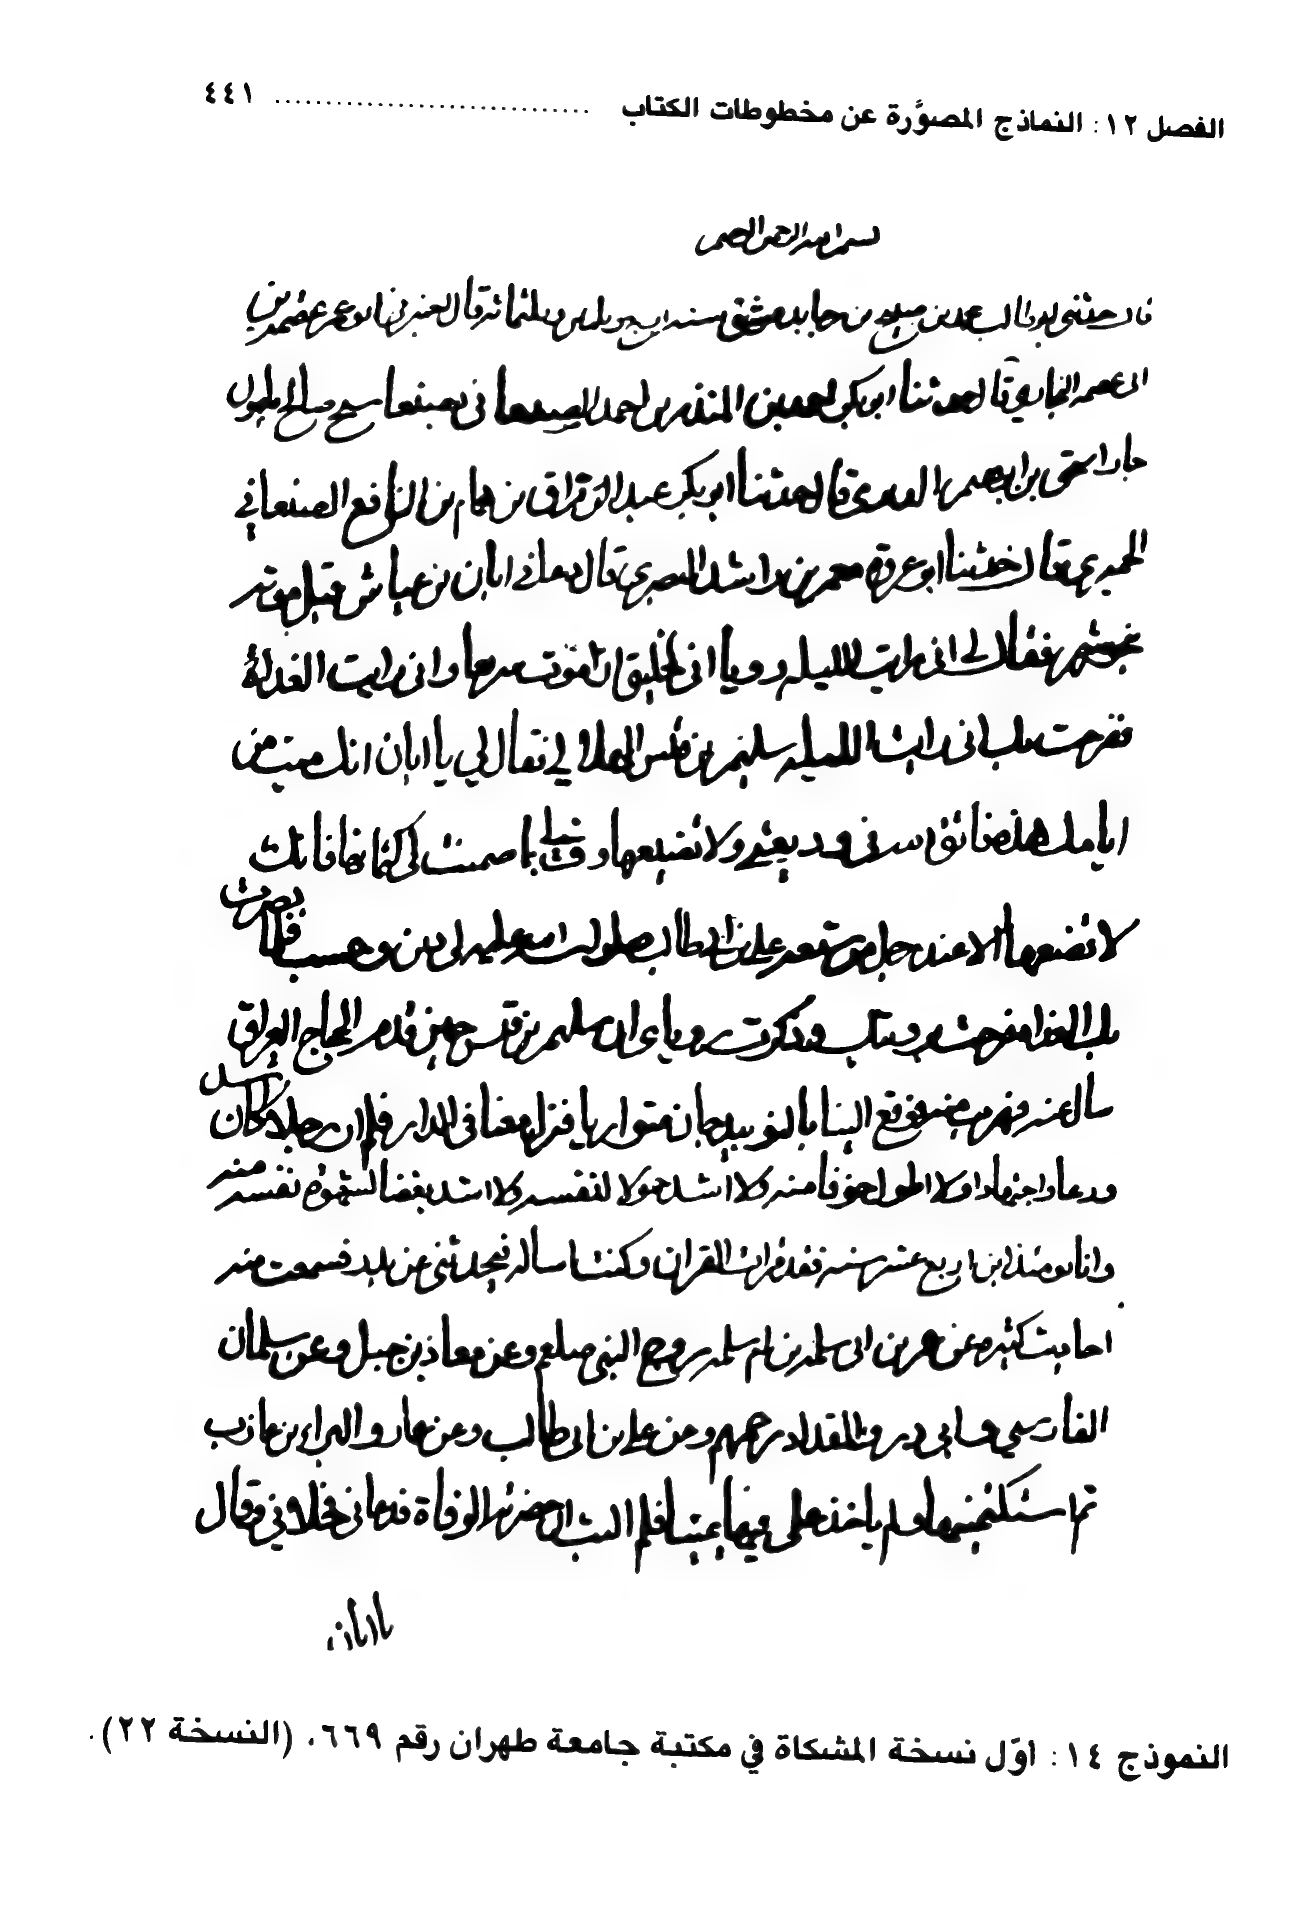 الفصل ١٢: النماذج المصوَّرة عن مخطوطات الكتاب ٤٤١
بسم الله الرحمن الرحيم
قال حدثني ابو طالب محمد بن صبيح بن رجا بدمشق سنة اربع وثلثين وثلثمائة قال اخبرني ابو عمرو عصمة بن
ابي عصمة البخاري قال حدثنا ابو بكر احمد بن المنذر بن احمد الصنعاني بصنعا شيخ صالح مامون
جار اسحق بن ابراهيم الدبري قال حدثنا ابو بكر عبد الرزاق بن همام بن نافع الصنعاني
الحميري قال حدثنا ابو عروة معمر بن راشد البصري قال دعاني ابان بن عياش قبل موته
بشهر فقال لي اني رايت الليلة رويا اني لخليق ان اموت سريعا واني رايت الغداة
ففرحت بك اني رايت الليلة سليم بن قيس الهلالي فقال لي يا ابان انك ميت من
ايامك هذه فاتق الله في وديعتي ولا تضيعها وف لي بما ضمنت لي كتمانها فانك
لا تضعها الا عند رجل من شيعة علي بن ابي طالب صلوات الله عليه له دين وحسب فلما بصرت
بك الغداة فرحت برويتك وذكرت روياي ان سليم بن قيس حين قدم الحجاج العراق
سال عنه فهرب منه فوقع الينا بالنوبندجان متواريا فنزل معنا في الدار فلم ار رجلا كان
ودعا واجتهادا ولا اطول خوفا منه ولا اشد خمولا لنفسه ولا اشد بغضا لشهرة نفسه منه
وانا يومئذ ابن اربع عشر سنة فقد قرات القران وكنت اساله فيحدثني عن بدر فسمعت منه
احاديث كثيره عن عمر بن ابي سلمه بن ام سلمه زوج النبي صلعم وعن معاذ بن جبل وعن سلمان
الفارسي وابي ذر والمقداد رحمهم وعن علي بن ابي طالب وعن عمار والبراء بن عازب
ثم استكتمنيها ولم ياخذ علي فيها يمينا فلم البث ان حضرته الوفاة فدعاني فخلا بي فقال
يا ابان
النموذج ١٤: أوّل نسخة المشكاة في مكتبة جامعة طهران رقم ٦٦٩، (النسخة ٢٢).